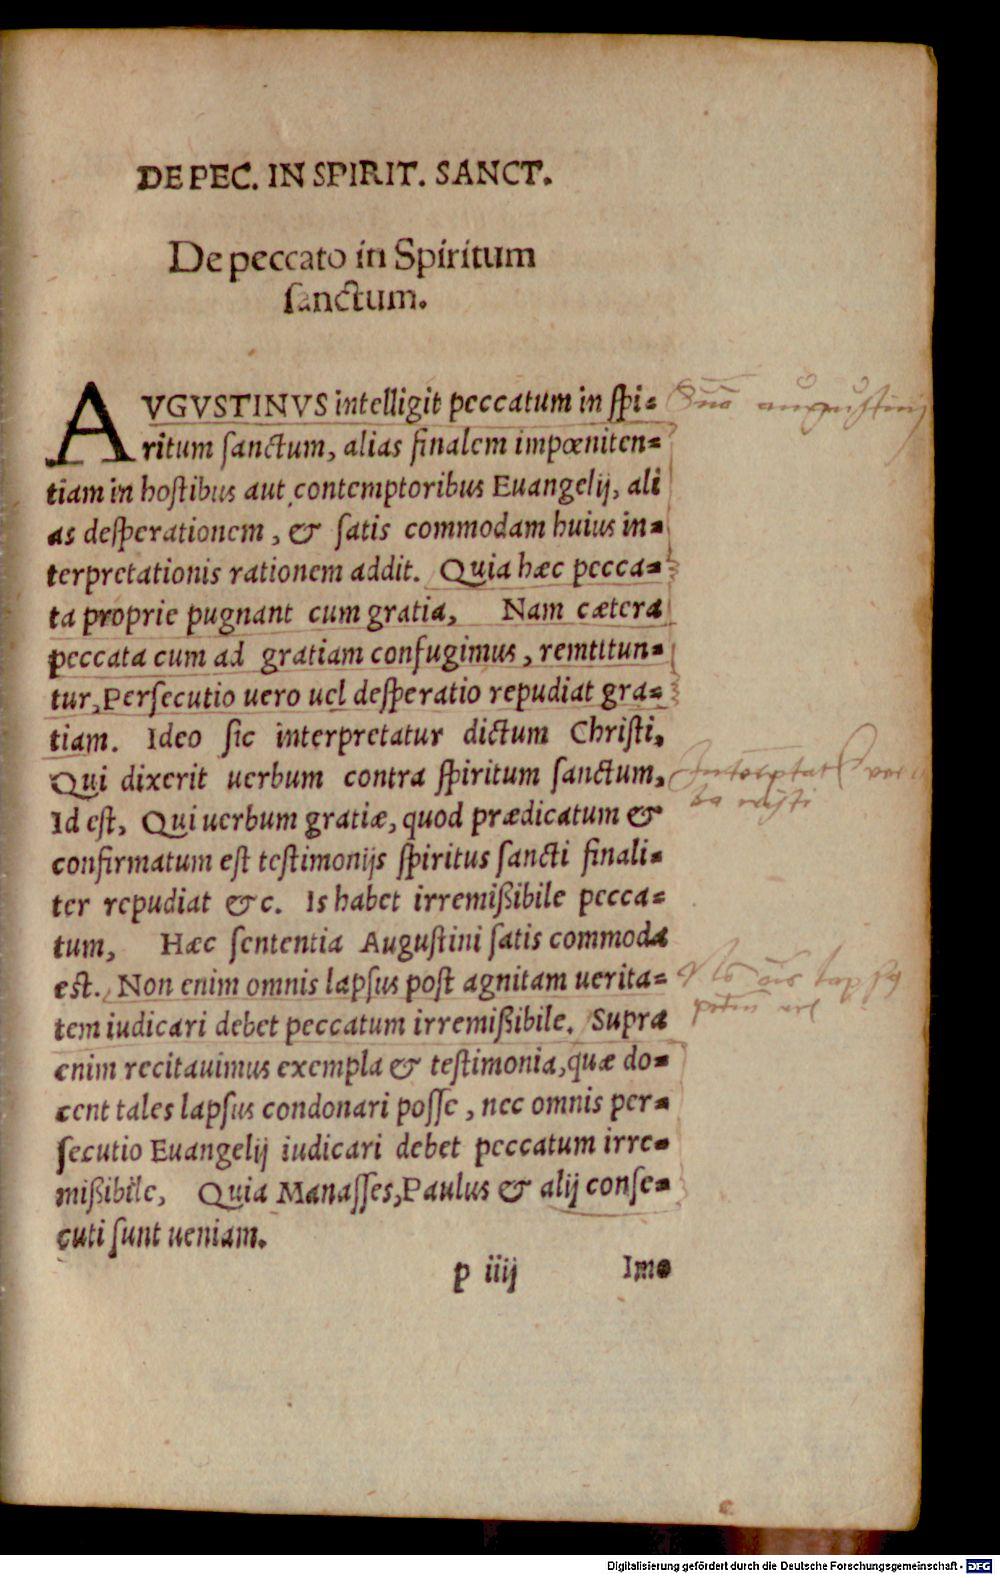 DE PEC. IN SPIRIT. SANCT.
De peccato in Spiritum
sanctum.
AVGVSTINVS intelligit peccatum in spi-
ritum sanctum, alias finalem impœniten-
tiam in hostibus aut contemptoribus Euangelij, ali
as desperationem, & satis commodam huius in-
terpretationis rationem addit. Quia hæc pecca-
ta proprie pugnant cum gratia, Nam cætera
peccata cum ad gratiam confugimus, remittun-
tur, Persecutio uero uel desperatio repudiat gra-
tiam. Ideo sic interpretatur dictum Christi,
Qui dixerit uerbum contra spiritum sanctum,
Id est, Qui uerbum gratiæ, quod prædicatum &
confirmatum est testimonijs spiritus sancti finali-
ter repudiat &c. Is habet irremißibile pecca-
tum, Hæc sententia Augustini satis commoda
est. Non enim omnis lapsus post agnitam uerita-
tem iudicari debet peccatum irremißibile. Supra
enim recitauimus exempla & testimonia, quæ do-
cent tales lapsus condonari posse, nec omnis per-
secutio Euangelij iudicari debet peccatum irre-
mißibile, Quia Manasses, Paulus & alij conse-
cuti sunt ueniam.
p iiij Imo
augustinj
Digitalisierung gefördert durch die Deutsche Forschungsgemeinschaft - DFG